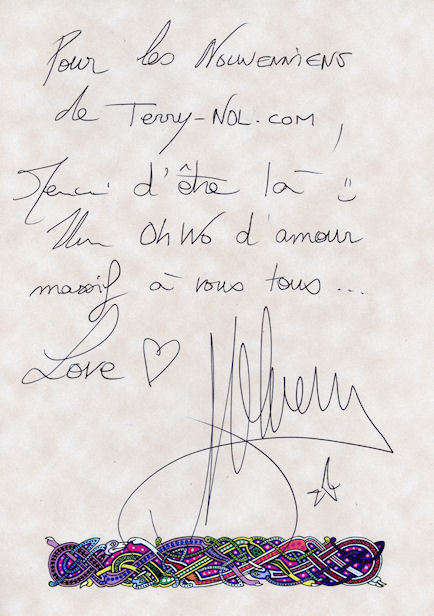 Pour les Nouwenniens
de Terry-Nol.com,
Merci d'être là :)
Un OhWo d'amour
massif à vous tous ...
Love ♡
Nolwenn